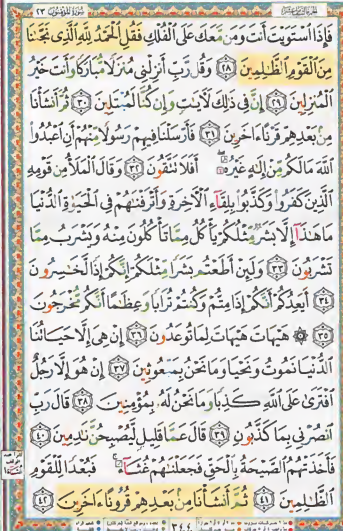 سورة المؤمنون ٢٣
فَإِذَا ٱسْتَوَيْتَ أَنتَ وَمَن مَّعَكَ عَلَى ٱلْفُلْكِ فَقُلِ ٱلْحَمْدُ لِلَّهِ ٱلَّذِى نَجَّىٰنَا
مِنَ ٱلْقَوْمِ ٱلظَّٰلِمِينَ ٢٨ وَقُل رَّبِّ أَنزِلْنِى مُنزَلًا مُّبَارَكًا وَأَنتَ خَيْرُ
ٱلْمُنزِلِينَ ٢٩ إِنَّ فِى ذَٰلِكَ لَءَايَٰتٍ وَإِن كُنَّا لَمُبْتَلِينَ ٣٠ ثُمَّ أَنشَأْنَا
مِنۢ بَعْدِهِمْ قَرْنًا ءَاخَرِينَ ٣١ فَأَرْسَلْنَا فِيهِمْ رَسُولًا مِّنْهُمْ أَنِ ٱعْبُدُوا۟
ٱللَّهَ مَا لَكُم مِّنْ إِلَٰهٍ غَيْرُهُۥٓ أَفَلَا تَتَّقُونَ ٣٢ وَقَالَ ٱلْمَلَأُ مِن قَوْمِهِ
ٱلَّذِينَ كَفَرُوا۟ وَكَذَّبُوا۟ بِلِقَآءِ ٱلْءَاخِرَةِ وَأَتْرَفْنَٰهُمْ فِى ٱلْحَيَوٰةِ ٱلدُّنْيَا
مَا هَٰذَآ إِلَّا بَشَرٌ مِّثْلُكُمْ يَأْكُلُ مِمَّا تَأْكُلُونَ مِنْهُ وَيَشْرَبُ مِمَّا
تَشْرَبُونَ ٣٣ وَلَئِنْ أَطَعْتُم بَشَرًا مِّثْلَكُمْ إِنَّكُمْ إِذًا لَّخَٰسِرُونَ
٣٤ أَيَعِدُكُمْ أَنَّكُمْ إِذَا مِتُّمْ وَكُنتُمْ تُرَابًا وَعِظَٰمًا أَنَّكُم مُّخْرَجُونَ
٣٥ ۞ هَيْهَاتَ هَيْهَاتَ لِمَا تُوعَدُونَ ٣٦ إِنْ هِىَ إِلَّا حَيَاتُنَا
ٱلدُّنْيَا نَمُوتُ وَنَحْيَا وَمَا نَحْنُ بِمَبْعُوثِينَ ٣٧ إِنْ هُوَ إِلَّا رَجُلٌ
ٱفْتَرَىٰ عَلَى ٱللَّهِ كَذِبًا وَمَا نَحْنُ لَهُۥ بِمُؤْمِنِينَ ٣٨ قَالَ رَبِّ
ٱنصُرْنِى بِمَا كَذَّبُونِ ٣٩ قَالَ عَمَّا قَلِيلٍ لَّيُصْبِحُنَّ نَٰدِمِينَ ٤٠
فَأَخَذَتْهُمُ ٱلصَّيْحَةُ بِٱلْحَقِّ فَجَعَلْنَٰهُمْ غُثَآءً فَبُعْدًا لِّلْقَوْمِ
ٱلظَّٰلِمِينَ ٤١ ثُمَّ أَنشَأْنَا مِنۢ بَعْدِهِمْ قُرُونًا ءَاخَرِينَ ٤٢
٣٤٤